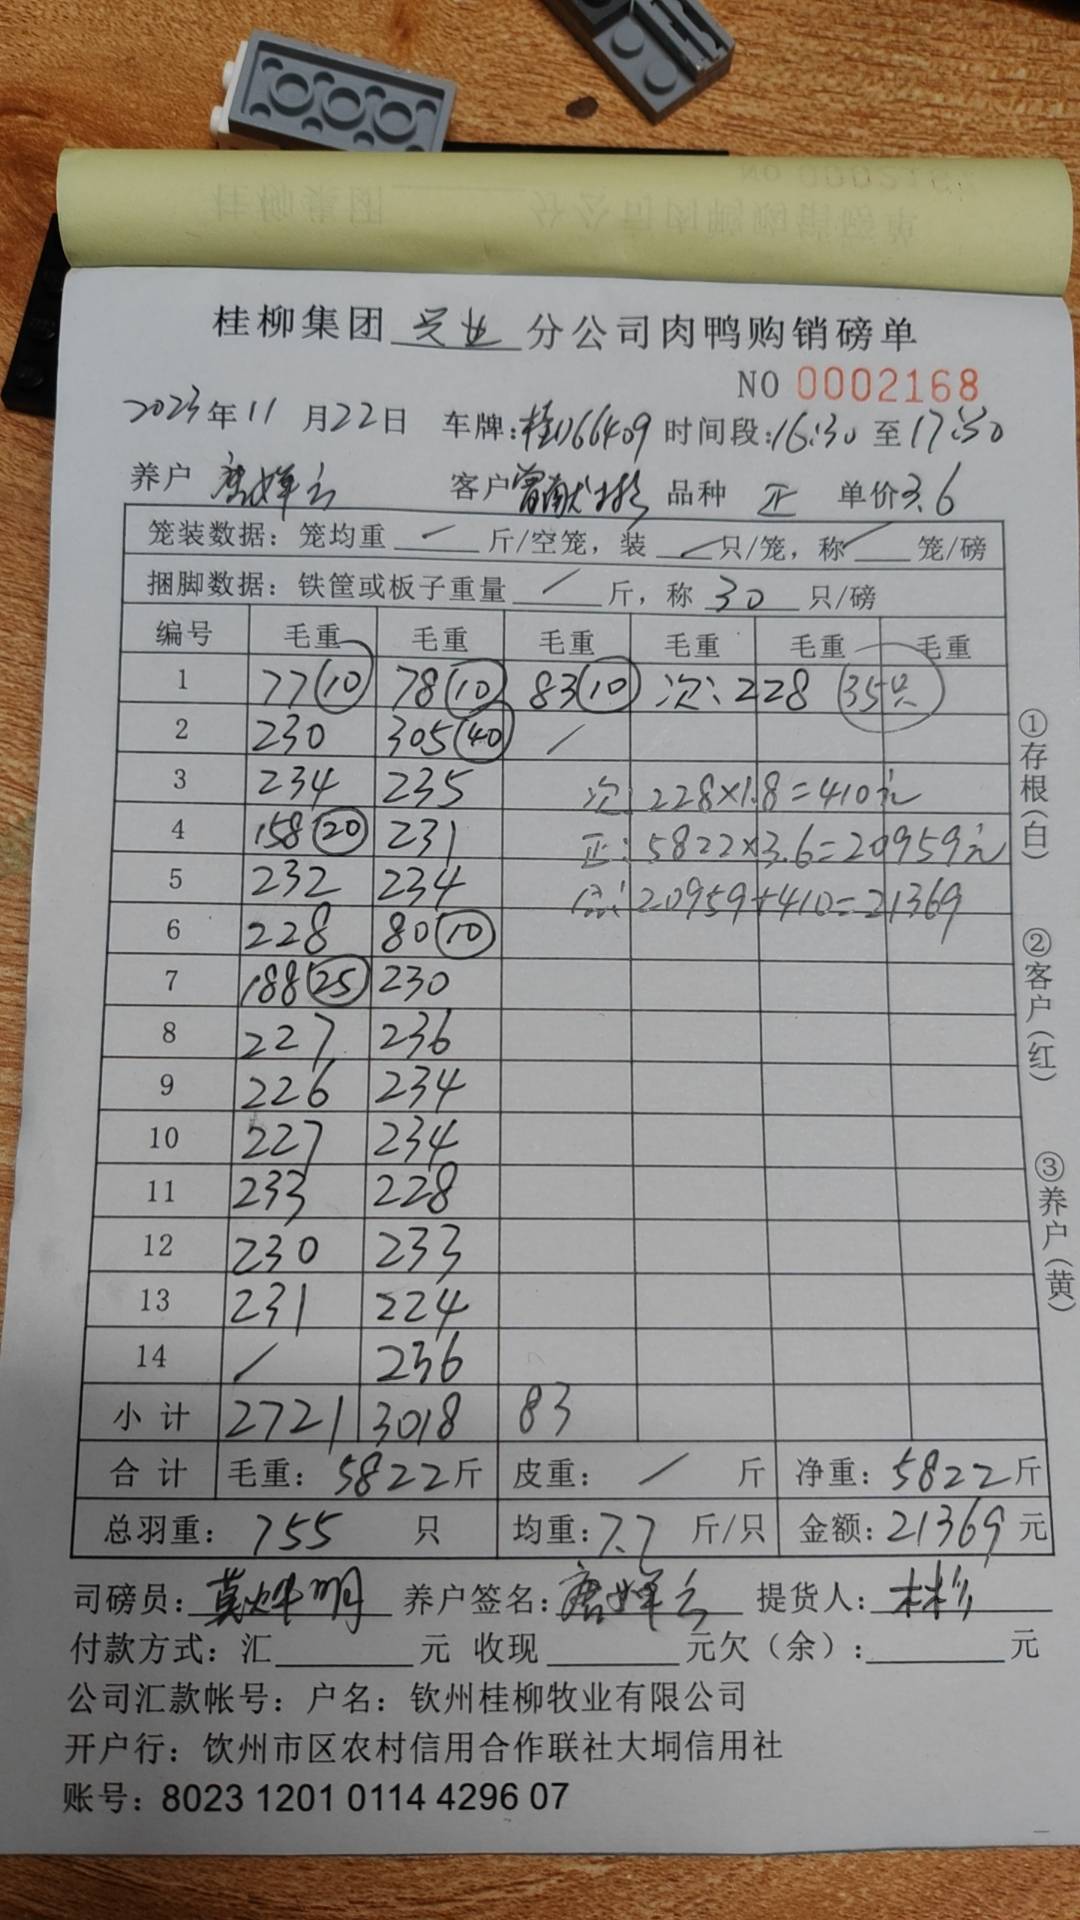 桂柳集团 兴业 分公司肉鸭购销磅单
NO 0002168
2023年11月22日 车牌:桂D66409 时间段:16:30至17:50
养户 唐婵云 客户 曾献 品种 正 单价3.6
笼装数据：笼均重 / 斤/空笼，装 / 只/笼，称 / 笼/磅
捆脚数据：铁筐或板子重量 / 斤，称 30 只/磅
编号 毛重 毛重 毛重 毛重 毛重 毛重
1 77(10) 78(10) 83(10) 次:228 (35只)
2 230 305(40) /
3 234 235 次: 228×1.8=410元
4 158(20) 231 正: 5822×3.6=20959元
5 232 234 20959+410=21369
6 228 80(10)
7 188(25) 230
8 227 236
9 226 234
10 227 234
11 233 228
12 230 233
13 231 224
14 / 236
小计 2721 3018 83
合计 毛重: 5822斤 皮重: / 斤 净重: 5822斤
总羽重: 755 只 均重:7.7 斤/只 金额:21369元
司磅员: 莫 明 养户签名: 唐婵云 提货人: 林
付款方式: 汇 元 收现 元欠（余）: 元
公司汇款帐号：户名：钦州桂柳牧业有限公司
开户行：饮州市区农村信用合作联社大垌信用社
账号：8023 1201 0114 4296 07
①存根(白)
②客户(红)
③养户(黄)